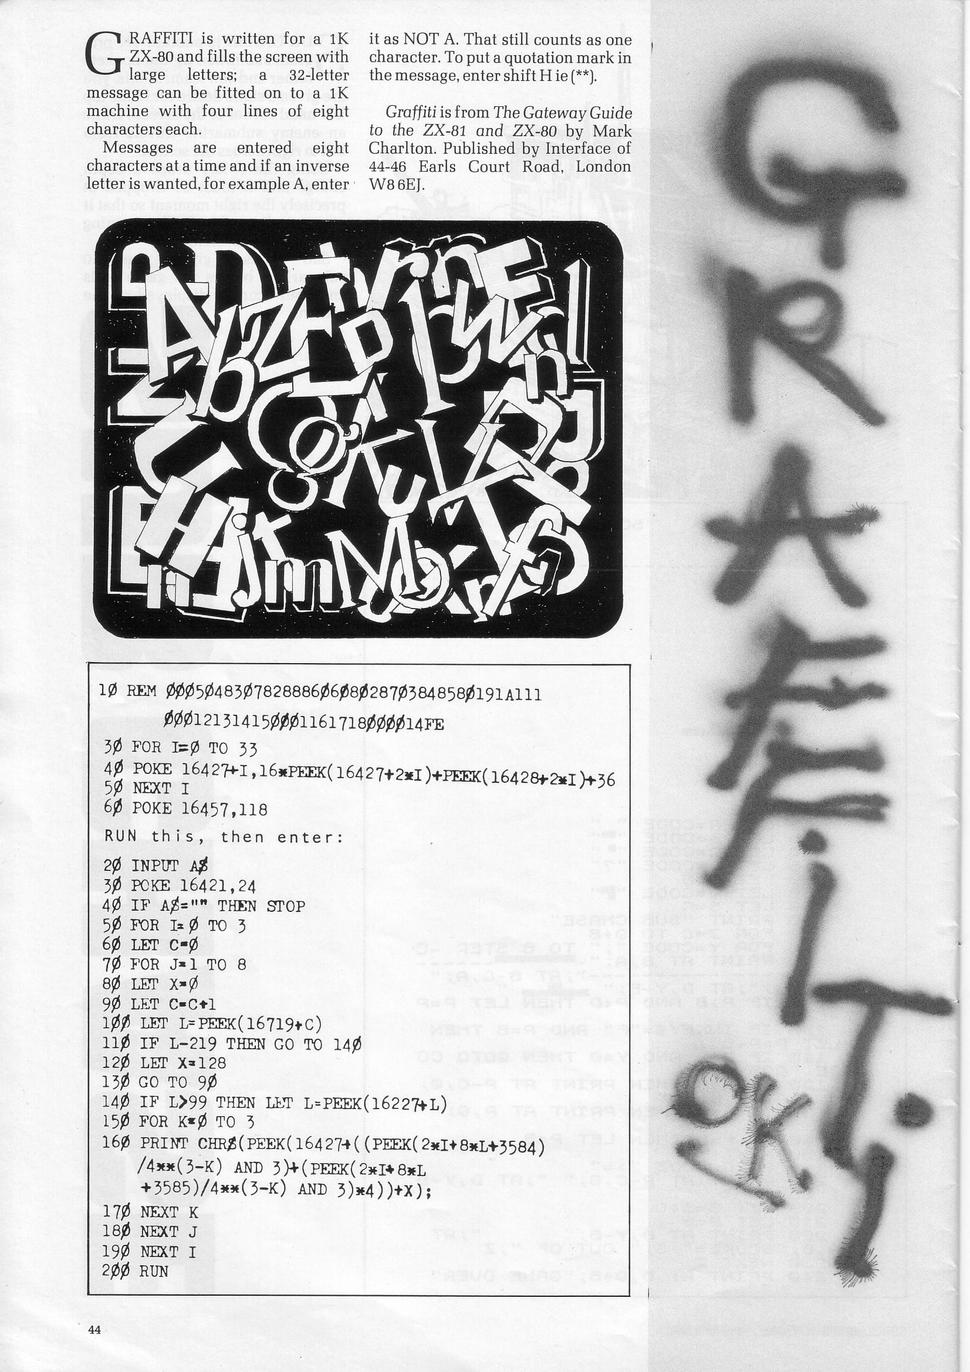 GRAFFITI is written for a 1K
ZX-80 and fills the screen with
large letters; a 32-letter
message can be fitted on to a 1K
machine with four lines of eight
characters each.
Messages are entered eight
characters at a time and if an inverse
letter is wanted, for example A, enter
it as NOT A. That still counts as one
character. To put a quotation mark in
the message, enter shift H ie (**).
Graffiti is from The Gateway Guide
to the ZX-81 and ZX-80 by Mark
Charlton. Published by Interface of
44-46 Earls Court Road, London
W8 6EJ.
10 REM 00050483078288860608028703848580191A111
000121314150001161718000014FE
30 FOR I=0 TO 33
40 POKE 16427+I,16*PEEK(16427+2*I)+PEEK(16428+2*I)+36
50 NEXT I
60 POKE 16457,118
RUN this, then enter:
20 INPUT A$
30 POKE 16421,24
40 IF A$="" THEN STOP
50 FOR I=0 TO 3
60 LET C=0
70 FOR J=1 TO 8
80 LET X=0
90 LET C=C+1
100 LET L=PEEK(16719+C)
110 IF L-219 THEN GO TO 140
120 LET X=128
130 GO TO 90
140 IF L>99 THEN LET L=PEEK(16227+L)
150 FOR K=0 TO 3
160 PRINT CHR$(PEEK(16427+((PEEK(2*I+8*L+3584)
/4**(3-K) AND 3)+(PEEK(2*I+8*L
+3585)/4**(3-K) AND 3)*4))+X);
170 NEXT K
180 NEXT J
190 NEXT I
200 RUN
44
GRAFFITI
OK